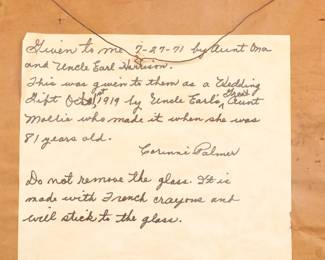 Given to me 7-27-71 by Aunt Ona
and Uncle Earl Harrison.
This was given to them as a Wedding
Gift Oct 1st 1919 by Uncle Earl's Great Aunt
Mollie who made it when she was
81 years old.
Corinne Palmer
Do not remove the glass. It is
made with French crayons and
will stick to the glass.